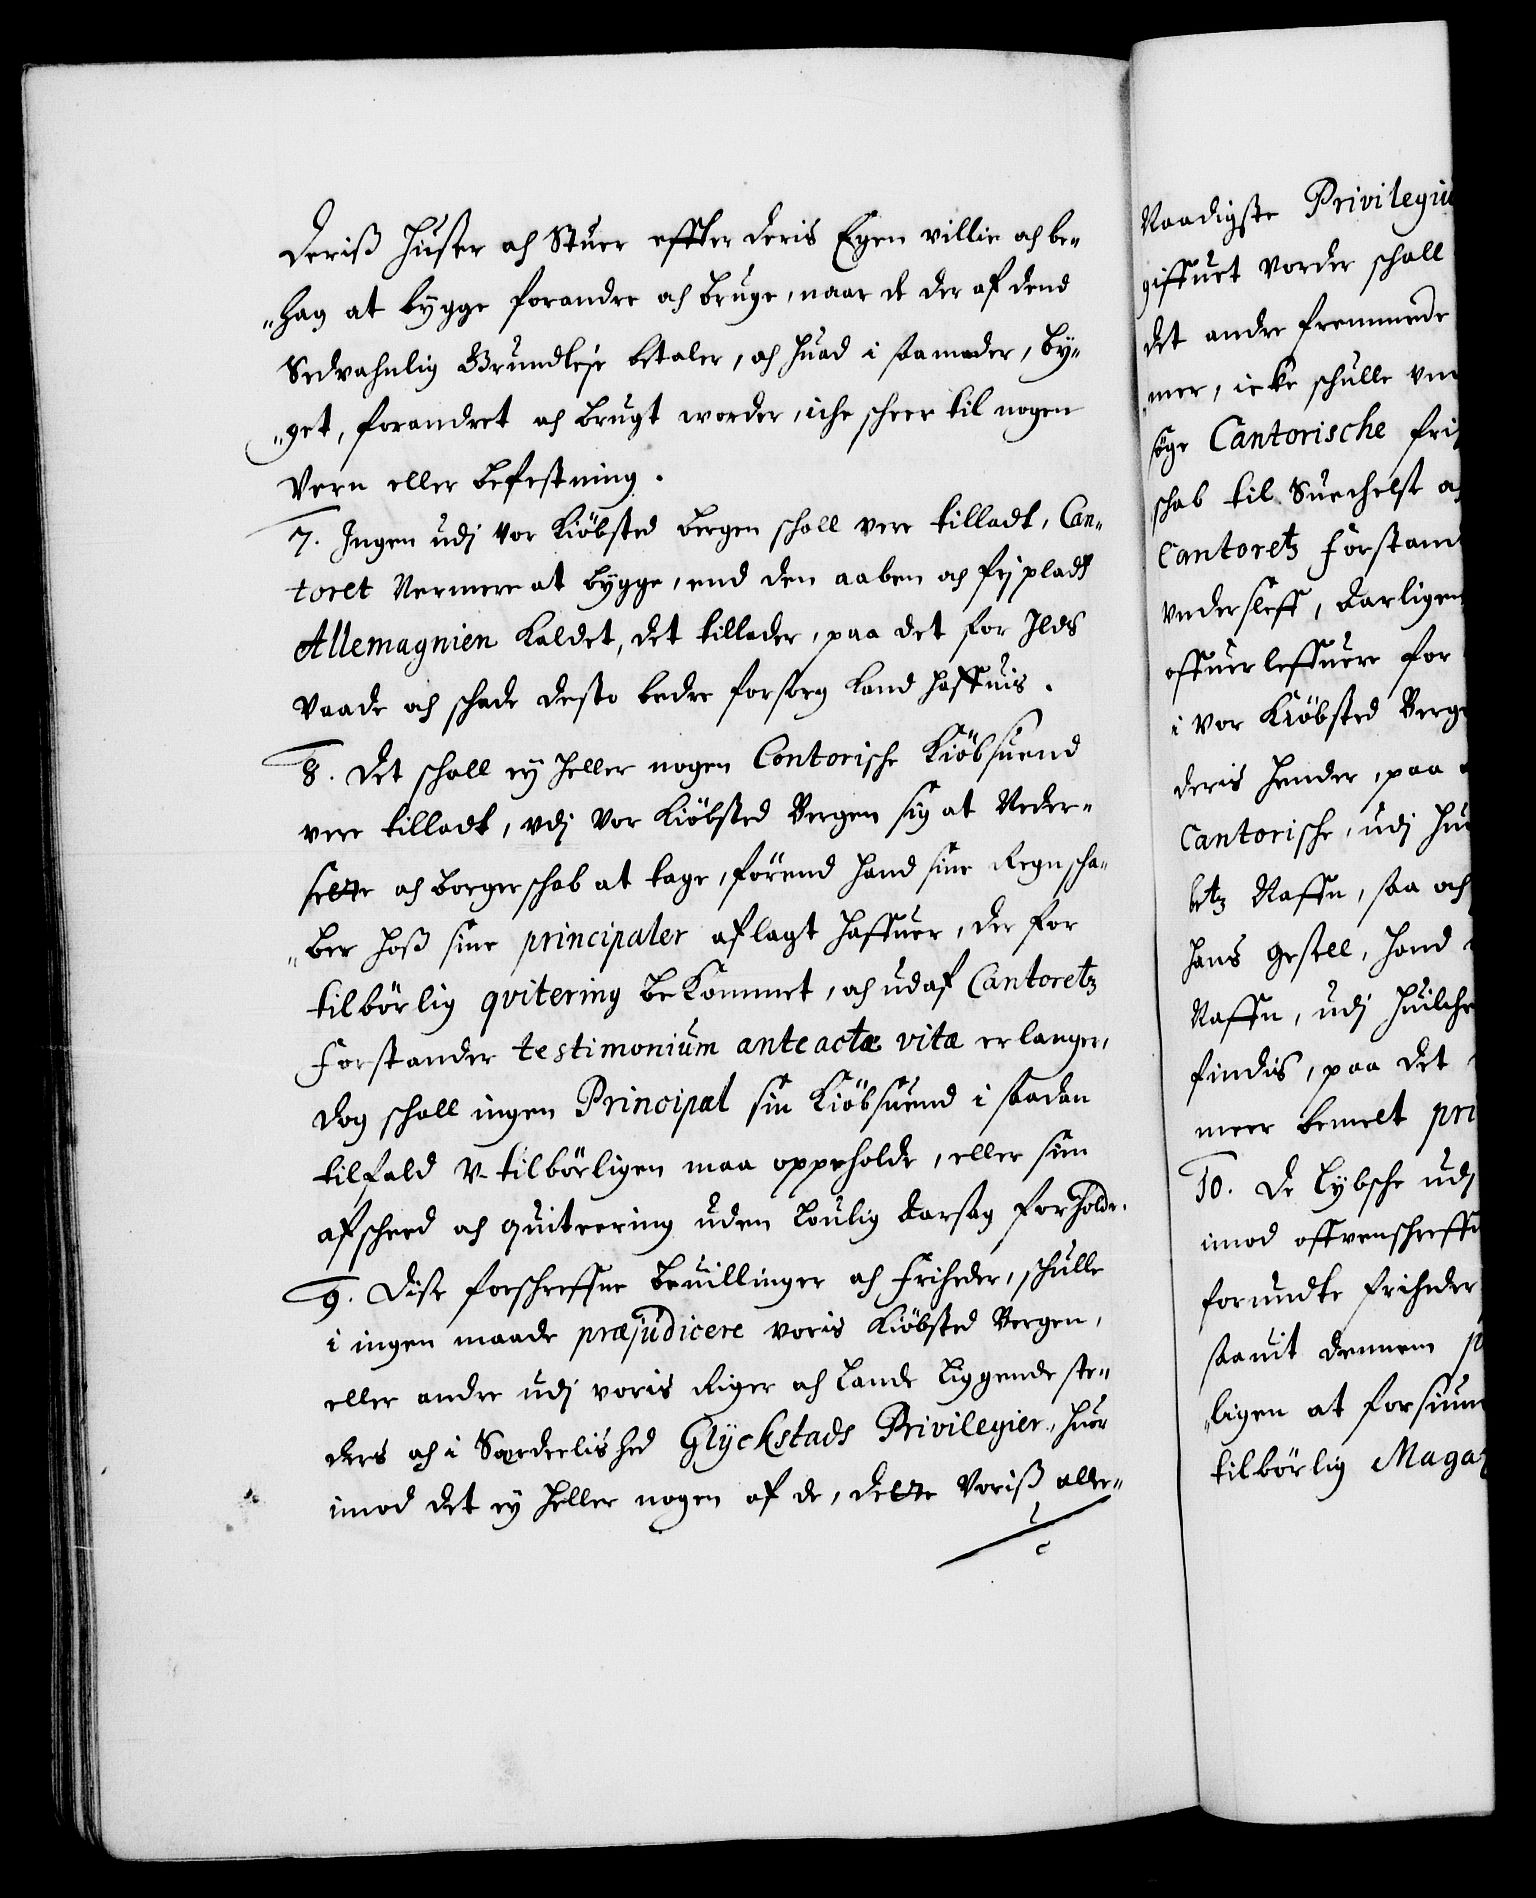 deriß Huser och Stuer effter deris Egen villie och be-
„hag at bygge forandre och bruge, naar de der af dend
Sedvahnlig Grundleje betaler, och huad i saamader, by-
„get, forandret och brugt worder, iche scheer til nogen
Vern eller befestning.
7. Ingen udj vor Kiöbsted Bergen schall vere tilladt, Can-
toret Nermere at bygge, end den aaben och frj pladtz
Allemagnien kaldet, det tillader, paa det for Ilds
Vaade och schade desto bedre forsorg kand haffuis.
8. Det schall ey heller nogen Contorische Kiöbsuend
vere tilladt, vdj Vor Kiöbsted Bergen sig at Neder-
sette och borgerschab at tage, förend hand sine Regnscha-
„ber hoß sine principaler aflagt haffuer, der for
tilbörlig qvitering bekommet, och udaf Cantoretz
Forstander testimonium anteactæ vitæ erlanger,
dog schall ingen Principal sin Kiöbsuend i saadan
tilfald v-tilbörligen maa oppeholde, eller sin
afscheed och quiteering uden louulig aarsag forholde.
9. Dise forschreffne beuillinger och Friheder, schulle
i ingen maade præjudicere voris Kiöbsted Bergen,
eller andre udj voris Riger och Lande liggende ste-
ders och i Særdeelished Glÿckstads Privilegier, huor
imod det ey heller nogen af de, dette Voriß aller-
Naadigste Privilegiu
giffuet vorder schall
det andre fremmede
mer, icke schulle vn
söge Cantorische fri
schab til Suechelse
Cantoretz Forstand
vndersleff, aarligen
offuerleffuere for
i vor Kiöbsted Berge
deris hender, paa
Cantorische, udj hu
betz Naffn, saa och
hans gesell, hand
Naffn, udj huilche
findis, paa det
meer bemelt pri
10. De Lybsche udj
imod offvenschreffn
forundte friheder
saauit dennem
„ligen at forsiun
tilbörlig Magaz